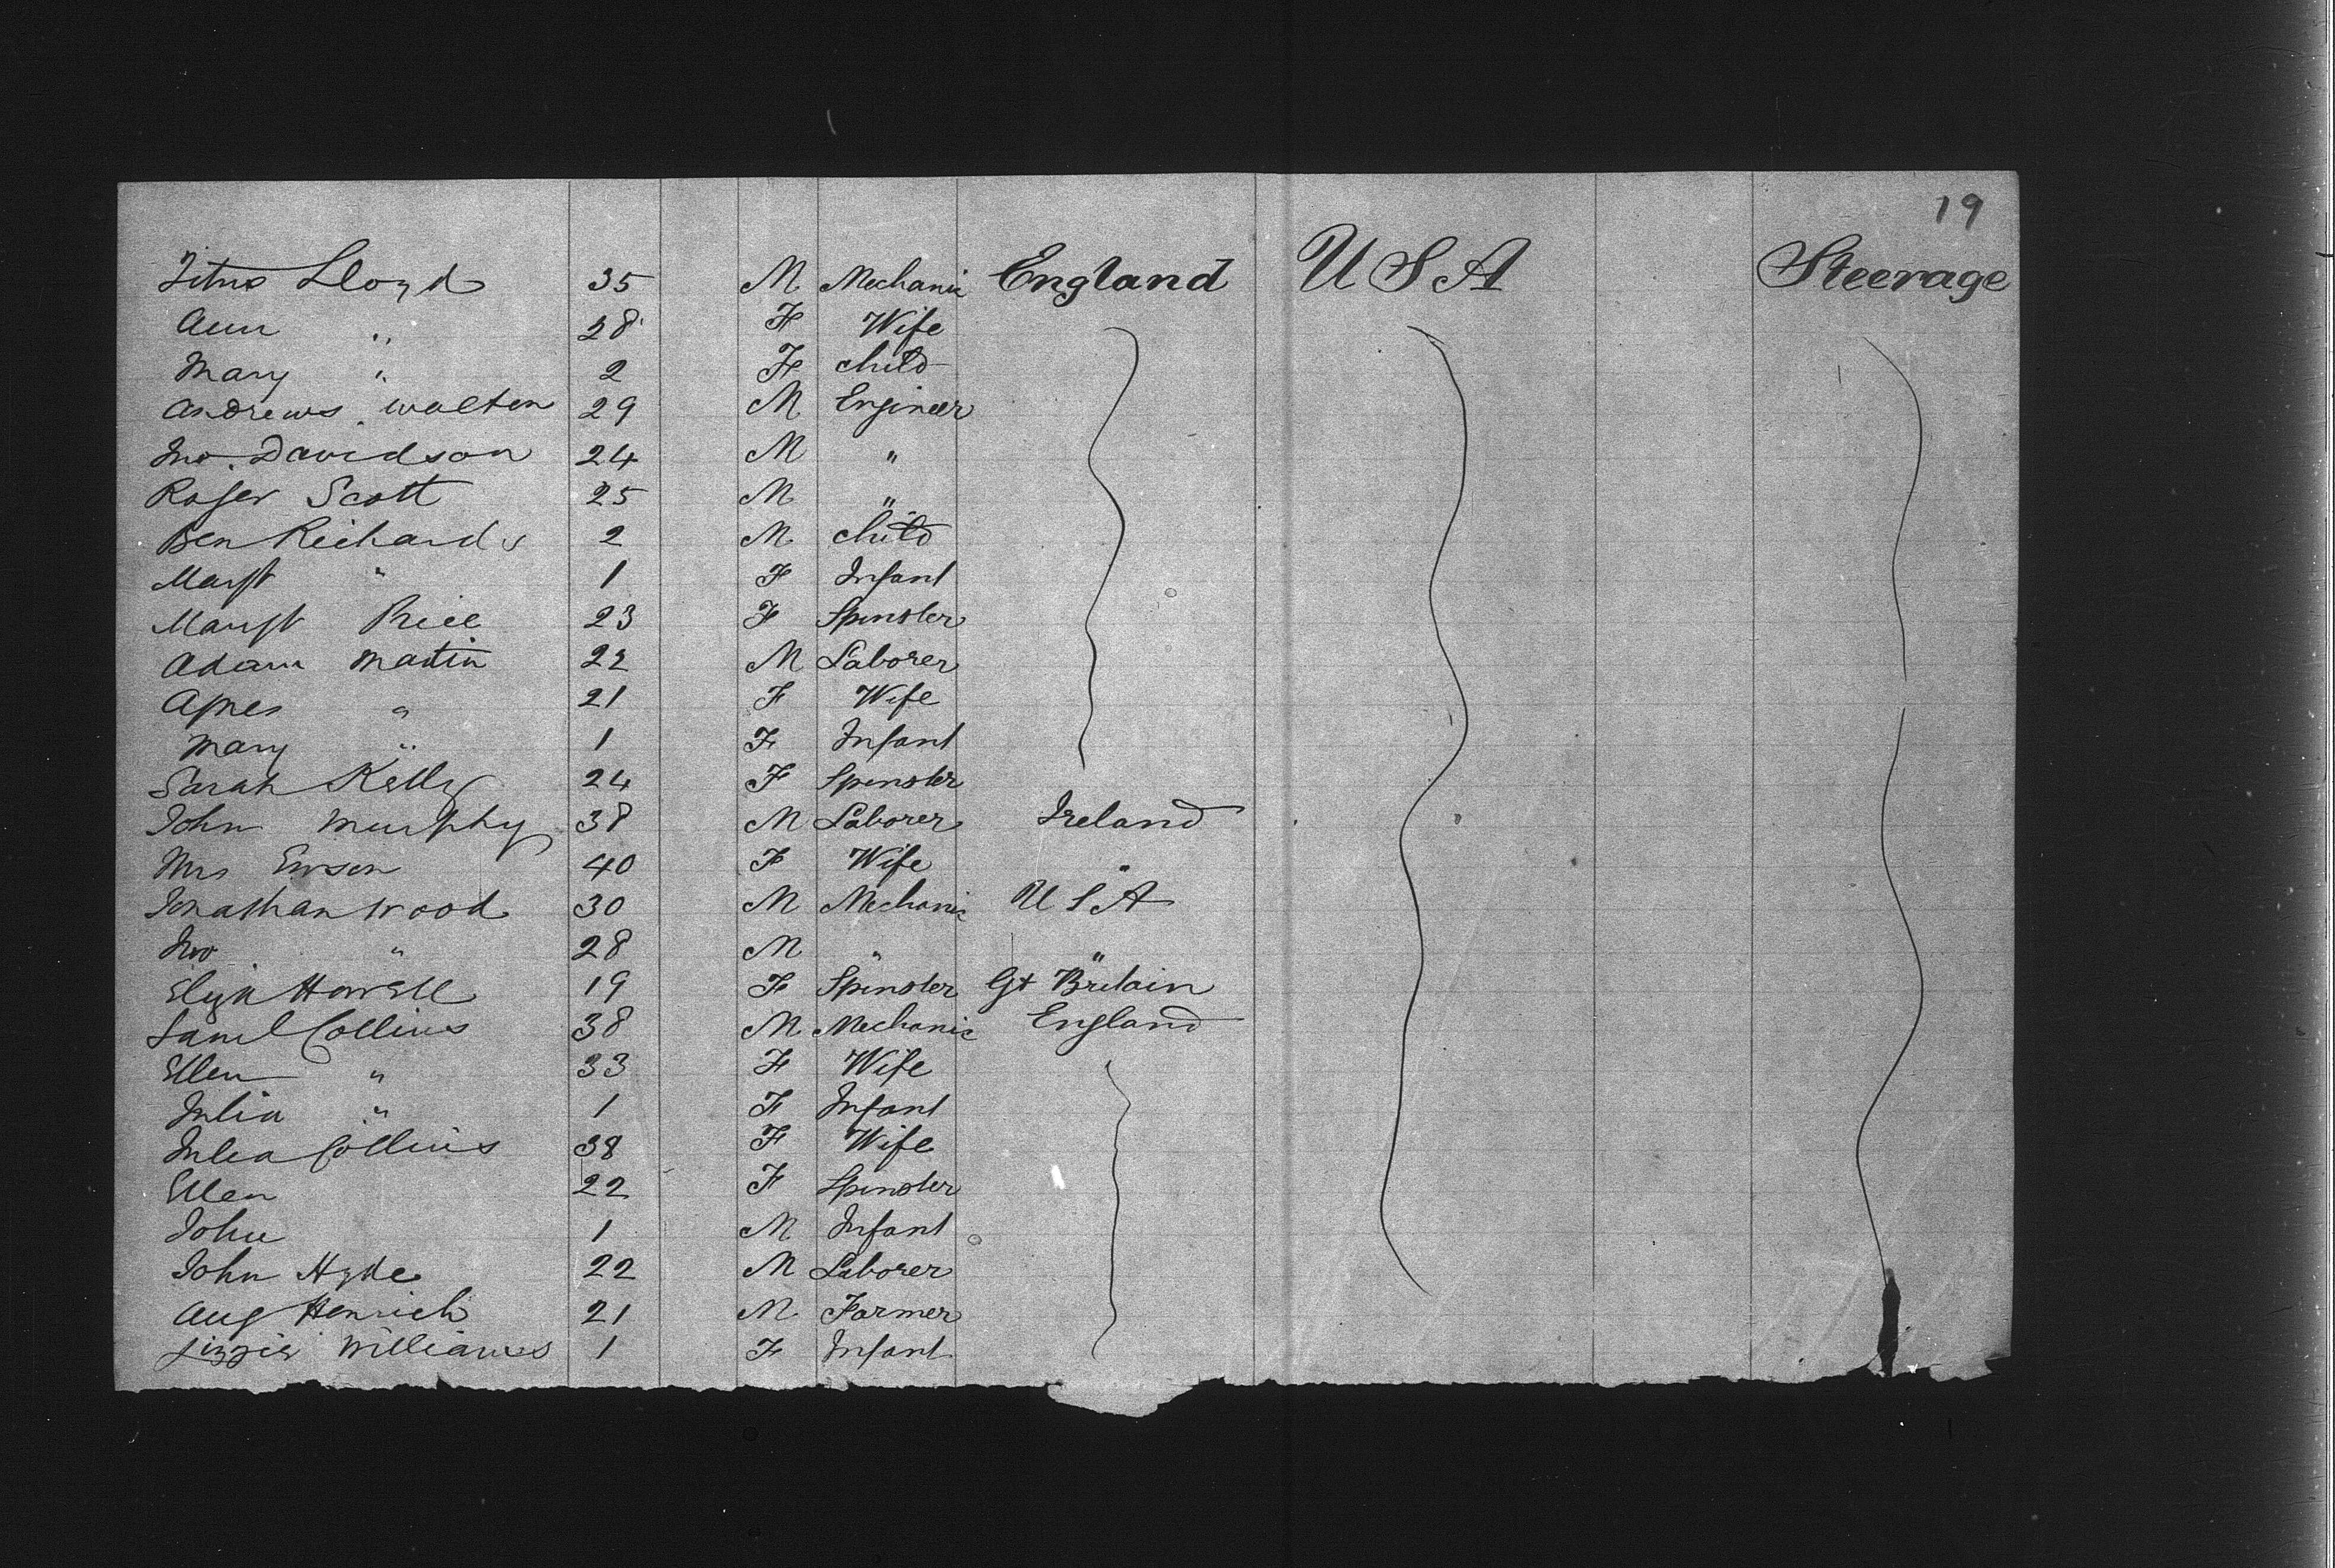 19
Titus Lloyd 35 M Mechanic England U S A Steerage
Ann " 28 F Wife
Mary " 2 F child
Andrews Walten 29 M Engineer
Jno. Davidson 24 M "
Roger Scott 25 M "
Ben Richards 2 M child
Margt " 1 F Infant
Margt Price 23 F Spinster
Adam Martin 22 M Laborer
Agnes " 21 F Wife
Mary " 1 F Infant
Sarah Kelly 24 F Spinster
John Murphy 38 M Laborer Ireland
Mrs 40 F Wife "
Jonathan Wood 30 M Mechanic U S A
Jno " 28 M " "
Eliza Howell 19 F Spinster Gt Britain
Saml Collins 38 M Mechanic England
Ellen " 33 F Wife
Julia " 1 F Infant
Julia Collins 38 F Wife
Ellen 22 F Spinster
John 1 M Infant
John Hyde 22 M Laborer
Aug Henrich 21 M Farmer
Lizzie Williams 1 F Infant